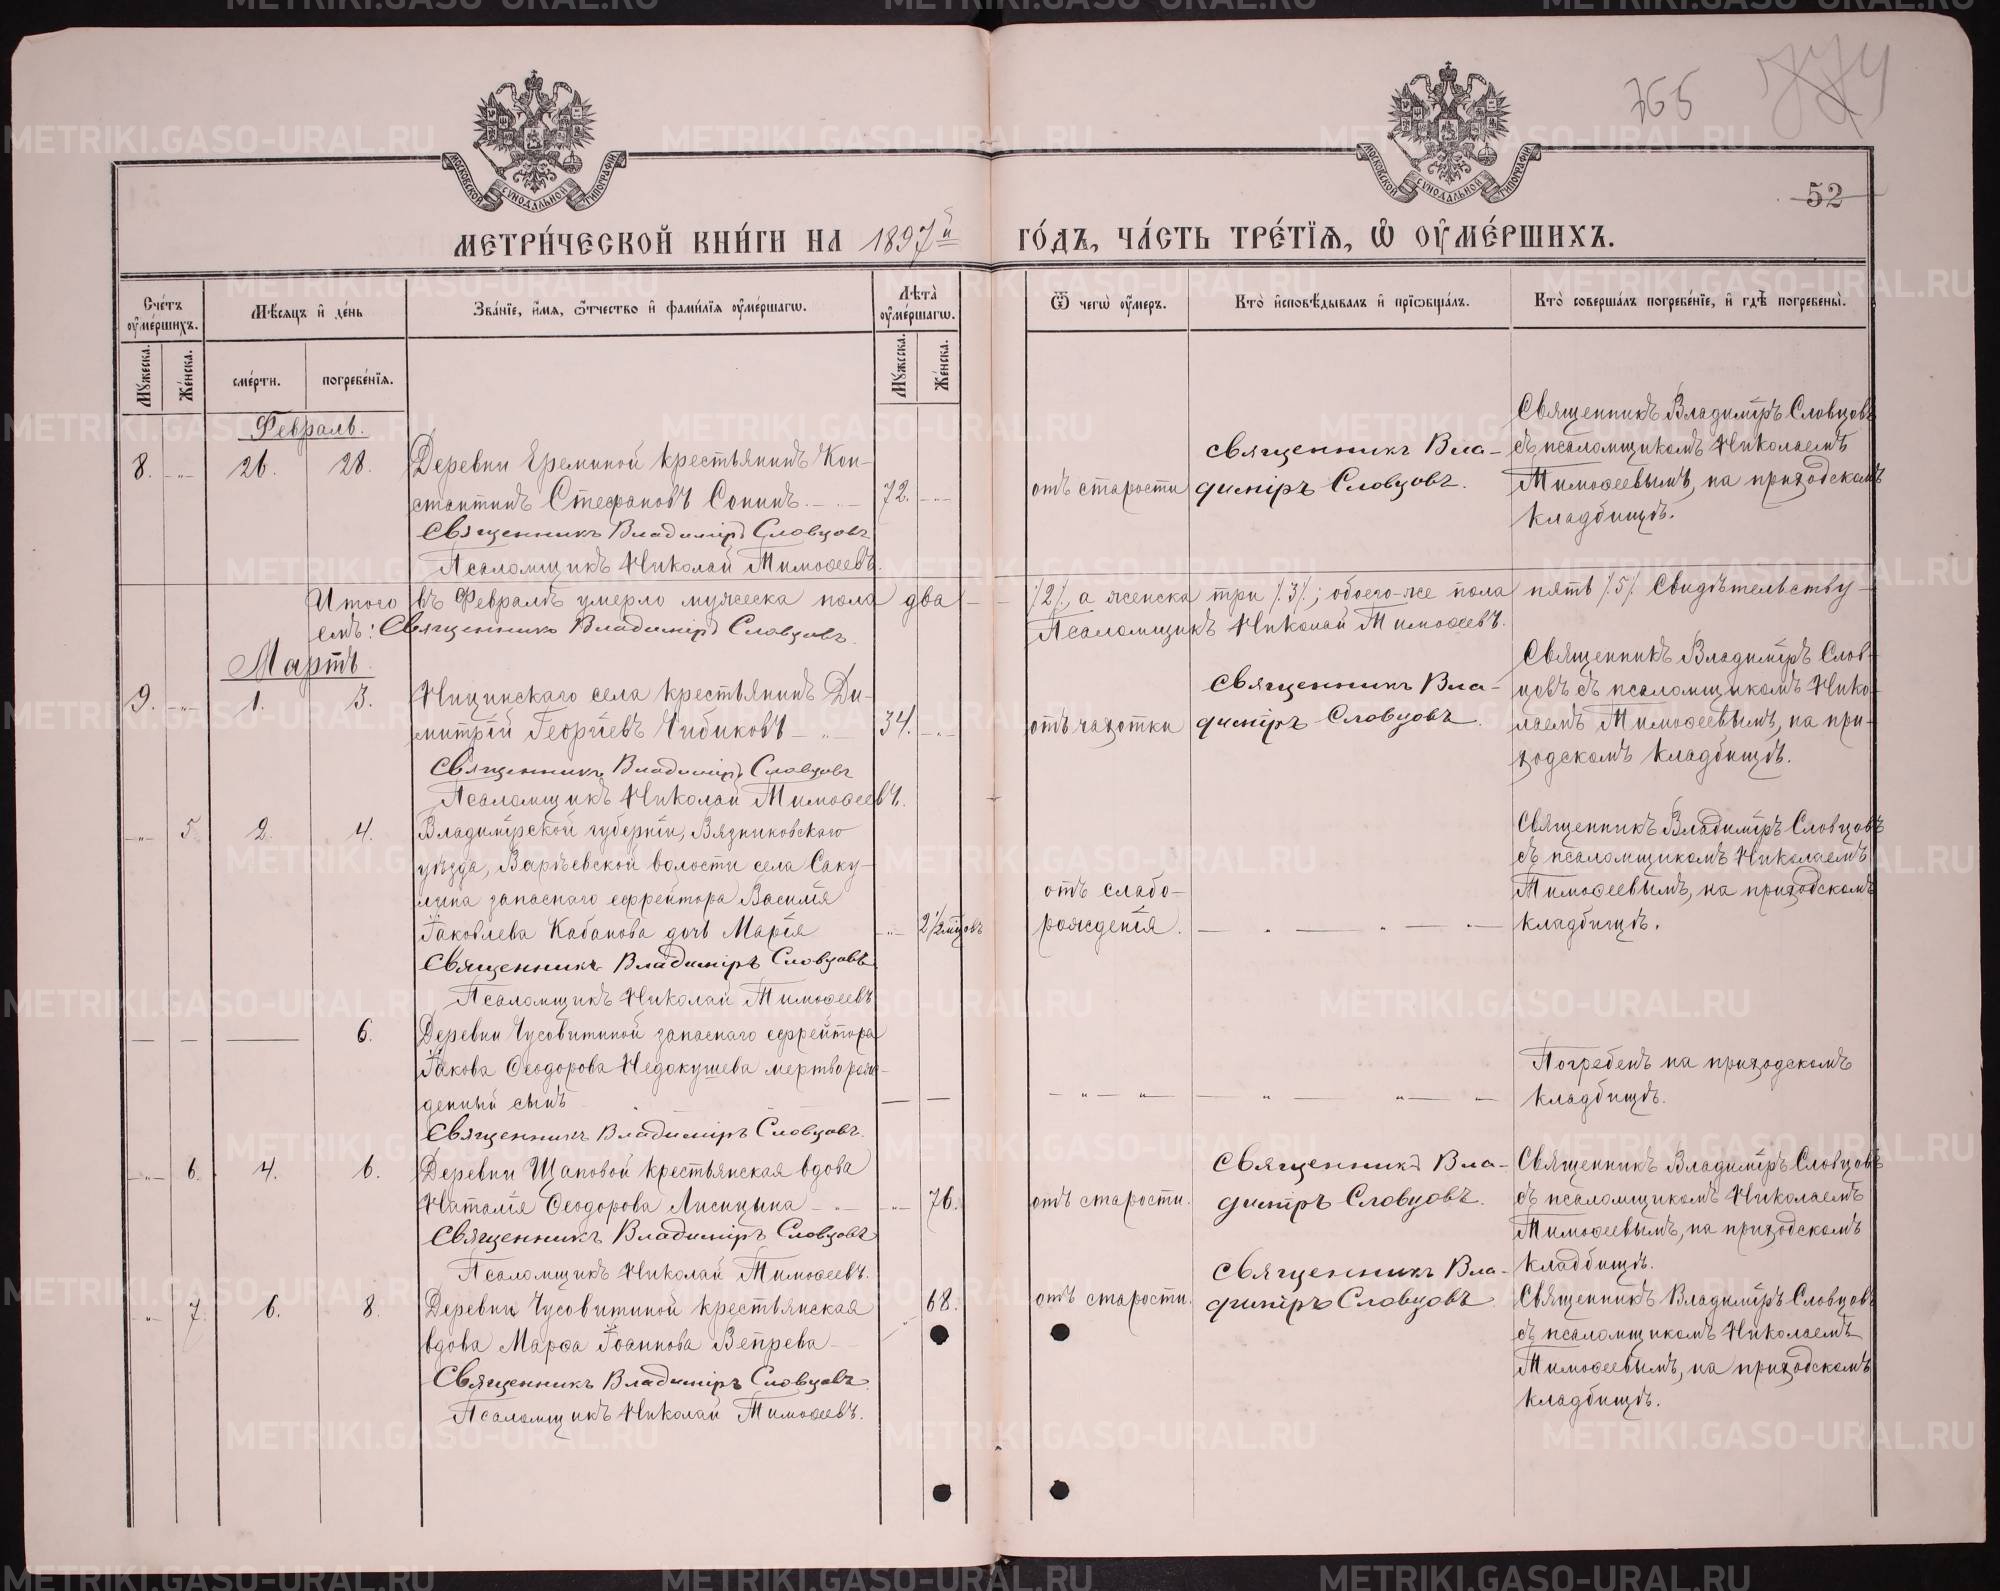 765
774
52
МОСКОВСКОЙ СѴНОДАЛЬНОЙ ТИПОГРАФІИ
МОСКОВСКОЙ СѴНОДАЛЬНОЙ ТИПОГРАФІИ
МЕТРИ́ЧЕСКОЙ КНИ́ГИ НА 1897й ГО́ДЪ, ЧА́СТЬ ТРЕ́ТІѦ, Ѡ҆ ОУ҆МЕ́РШИХЪ.
Сче́тъ оу҆ме́ршихъ.
Мѣ́сѧцъ и҆ де́нь
Зва́нїе, и҆́мѧ, ѻ҆́тчество и҆ фами́лїѧ оу҆ме́ршагѡ.
Лѣта̀ оу҆ме́ршагѡ.
Ѿ чегѡ̀ оу҆́меръ.
Кто̀ и҆сповѣ́дывалъ и҆ прїѡбща́лъ.
Кто̀ соверша́лъ погребе́нїе, и҆ гдѣ̀ погребены̀.
Мꙋ́жеска.
Же́нска.
сме́рти.
погребе́нїѧ.
Мꙋ́жеска.
Же́нска.
Февраль.
8. -„- 26. 28. Деревни Ереминой крестьянинъ Кон-
стантинъ Стефановъ Сопинъ. 72. -„-
Священникъ Владиміръ Словцовъ
Псаломщикъ Николай Тимоѳеевъ.
отъ старости
Священникъ Вла-
диміръ Словцовъ.
Священникъ Владиміръ Словцовъ
съ псаломщикомъ Николаемъ
Тимоѳеевымъ, на приходскомъ
кладбищѣ.
Итого въ Февралѣ умерло мужеска пола два /2/, а женска три /3/; обоего-же пола пять /5/. Свидѣтельству-
емъ: Священникъ Владиміръ Словцовъ. Псаломщикъ Николай Тимоѳеевъ.
Мартъ.
9. -„- 1. 3. Ницинскаго села крестьянинъ Ди-
митрій Георгіевъ Чибиковъ 34. -„-
Священникъ Владиміръ Словцовъ
Псаломщикъ Николай Тимоѳеевъ.
отъ чахотки
Священникъ Вла-
диміръ Словцовъ.
Священникъ Владиміръ Слов-
цовъ съ псаломщикомъ Нико-
лаемъ Тимоѳеевымъ, на при-
ходскомъ кладбищѣ.
-„- 5. 2. 4. Владимірской губерніи, Вязниковскаго
уѣзда, Варѣевской волости села Саку-
лина запаснаго ефрейтора Василія
Іаковлева Кабанова дочь Марія -„- 2 1/2 мѣсцовъ
Священникъ Владиміръ Словцовъ
Псаломщикъ Николай Тимоѳеевъ
отъ слабо-
рожденія.
Священникъ Владиміръ Словцовъ
съ псаломщикомъ Николаемъ
Тимоѳеевымъ, на приходскомъ
кладбищѣ.
6. Деревни Чусовитиной запаснаго ефрейтора
Іакова Ѳеодорова Недокушева мертворож-
денный сынъ
Священникъ Владиміръ Словцовъ.
Погребенъ на приходскомъ
кладбищѣ.
-„- 6. 4. 6. Деревни Щаповой крестьянская вдова
Наталія Ѳеодорова Лисицына -„- 76.
Священникъ Владиміръ Словцовъ
Псаломщикъ Николай Тимоѳеевъ.
отъ старости.
Священникъ Вла-
диміръ Словцовъ.
Священникъ Владиміръ Словцовъ
съ псаломщикомъ Николаемъ
Тимоѳеевымъ, на приходскомъ
кладбищѣ.
-„- 7. 6. 8. Деревни Чусовитиной крестьянская
вдова Марѳа Іоаннова Вепрева -„- 68.
Священникъ Владиміръ Словцовъ
Псаломщикъ Николай Тимоѳеевъ.
отъ старости.
Священникъ Вла-
диміръ Словцовъ
Священникъ Владиміръ Словцовъ
съ псаломщикомъ Николаемъ
Тимоѳеевымъ, на приходскомъ
кладбищѣ.
METRIKI.GASO-URAL.RU